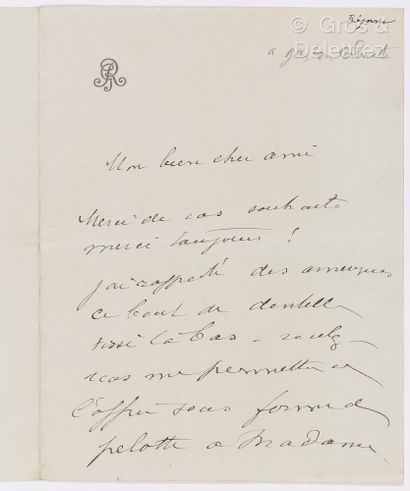 Réjane
© Gros & Delettrez
a
Mon bien cher ami
Merci de vos souhaits
merci toujours !
j'ai rapporté des ameriques
ce bout de dentelle
tissé la bas -
vous me permettre de
l'offrir sous forme de
pelotte a Madame